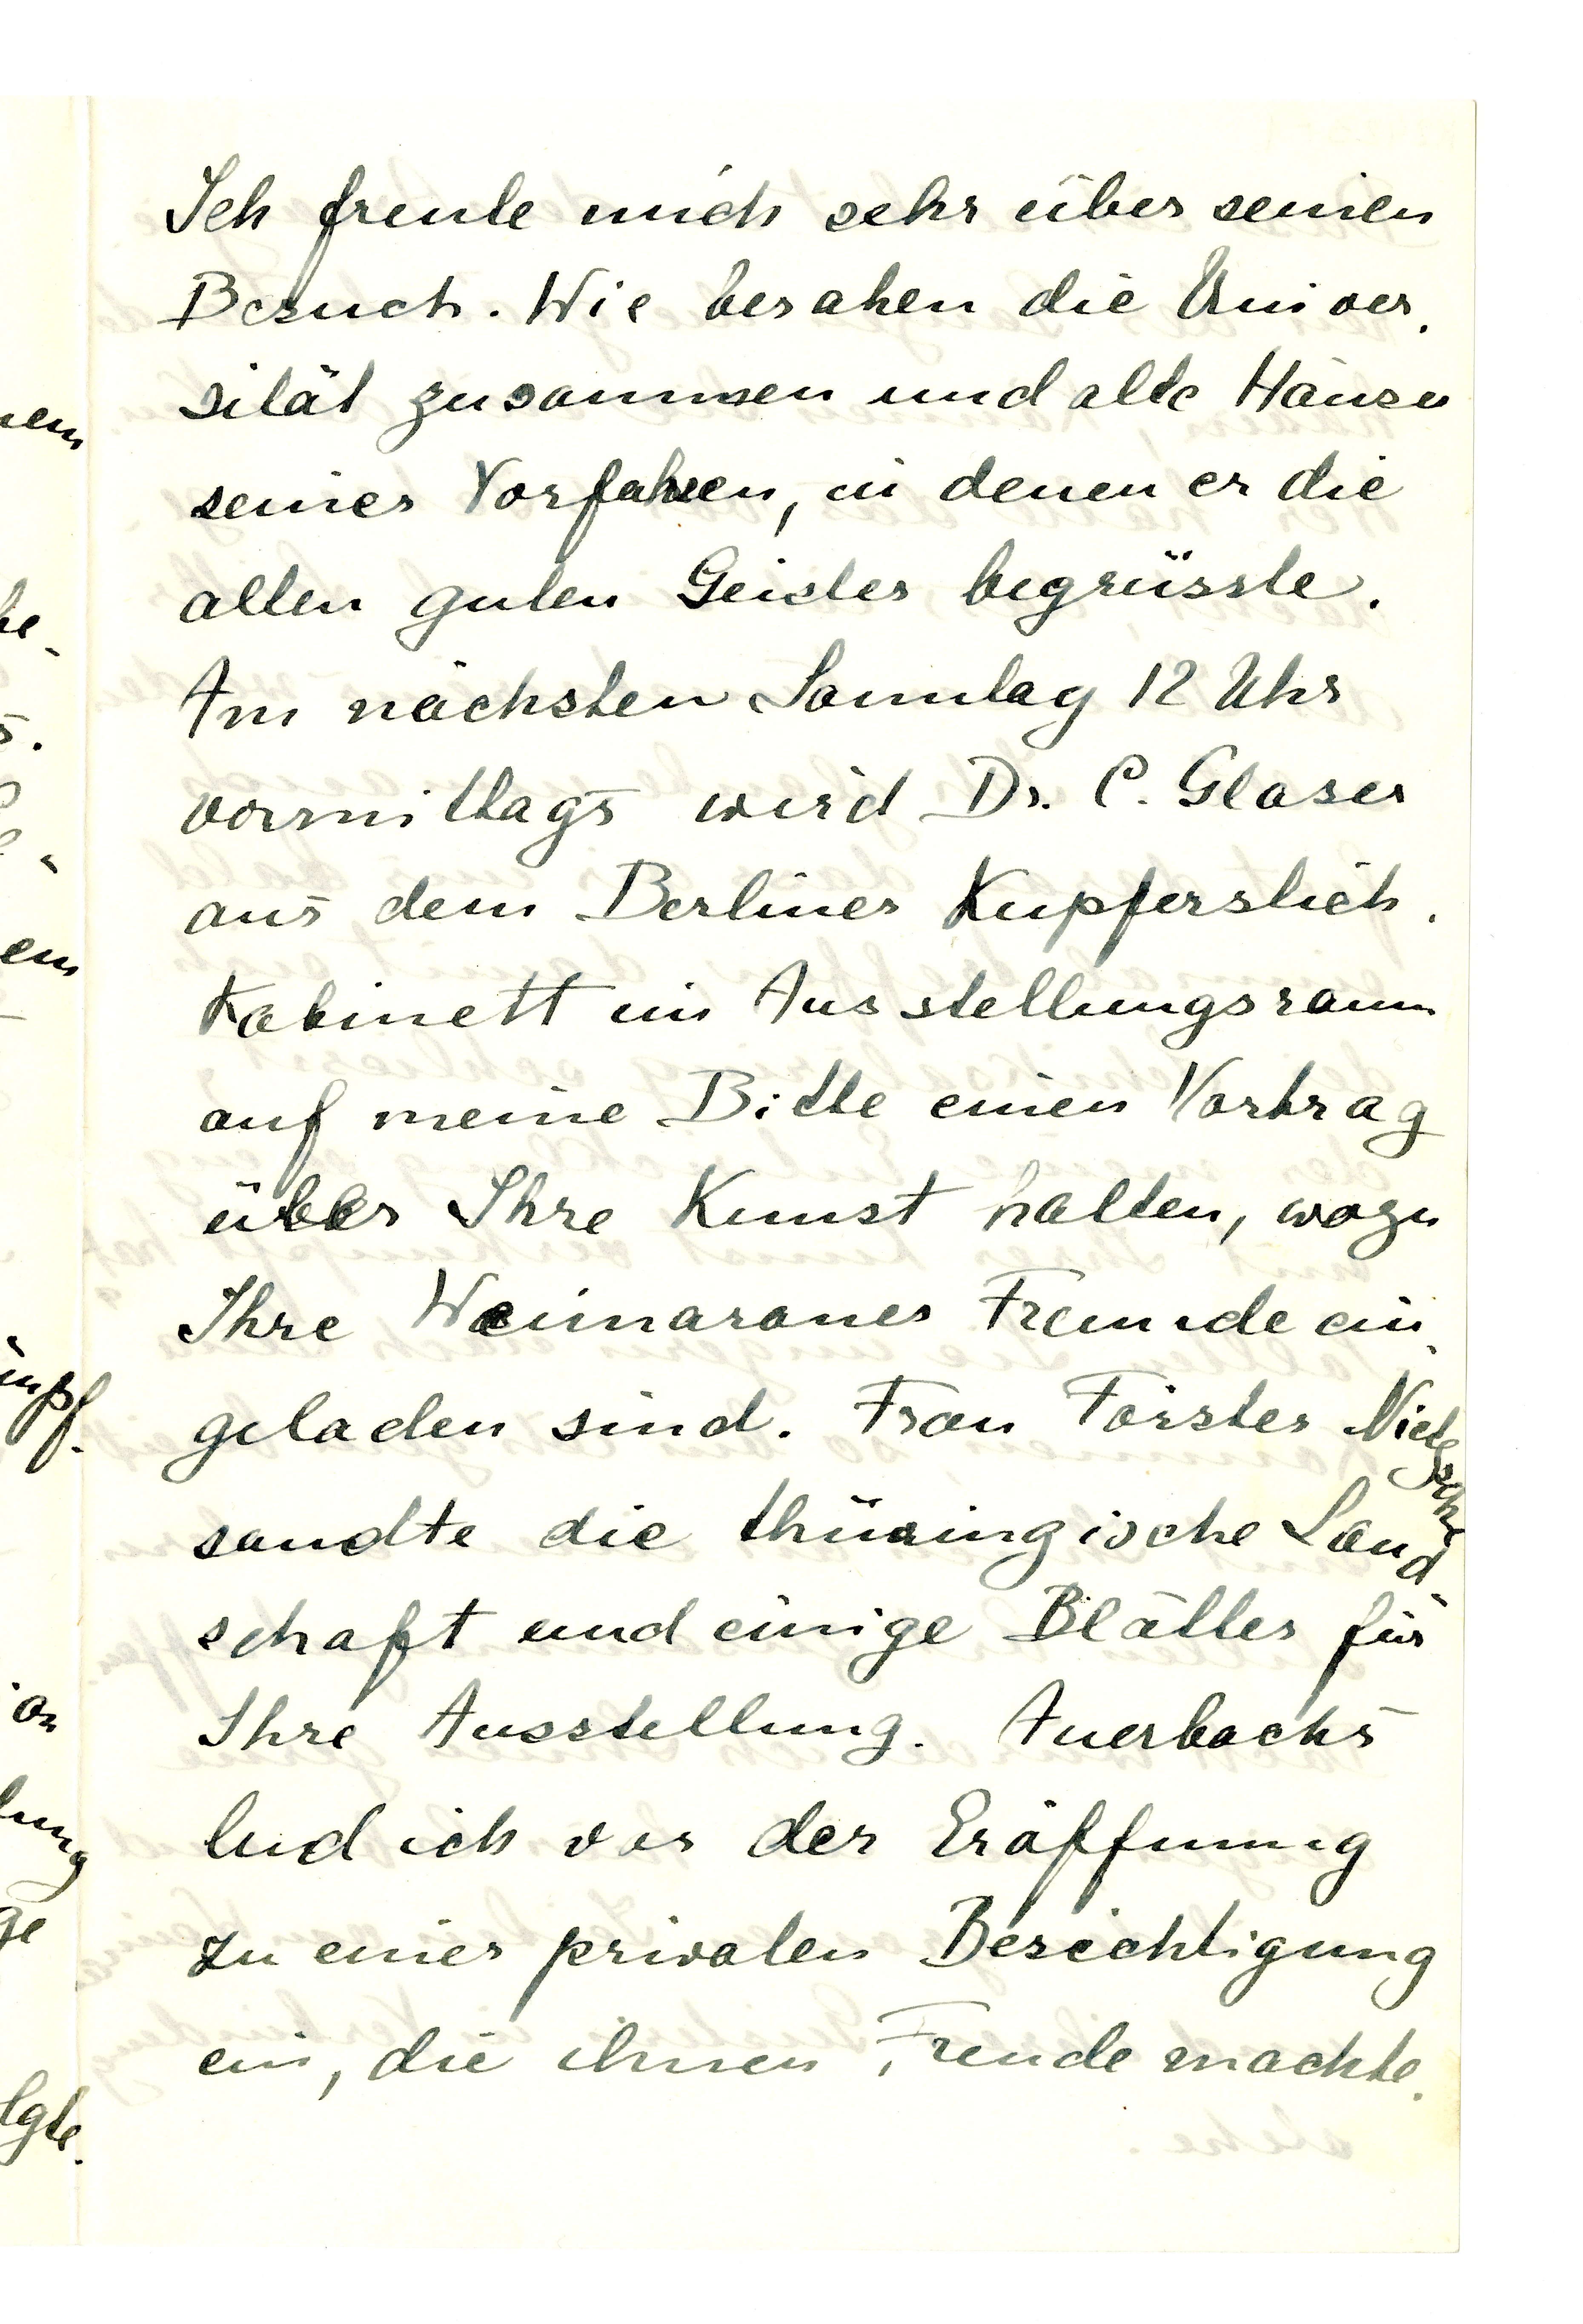 Ich freute mich sehr über seinen
Besuch. Wir besahen die Univer-
sität zusammen und alte Häuser
seiner Vorfahren, in denen er die
alten guten Geister begrüsste.
Am nächsten Sonntag 12 Uhr
vormittags wird Dr. C. Glaser
aus dem Berliner Kupferstich-
Kabinett im Ausstellungsraum
auf meine Bitte einen Vortrag
über Ihre Kunst halten, wozu
Ihre Weimaraner Freunde ein-
geladen sind. Frau Förster Nietzsche
sandte die thüringische Land-
schaft und einige Blätter für
Ihre Ausstellung. Auerbachs
lud ich vor der Eröffnung
zu einer privaten Besichtigung
ein, die ihnen Freude machte.